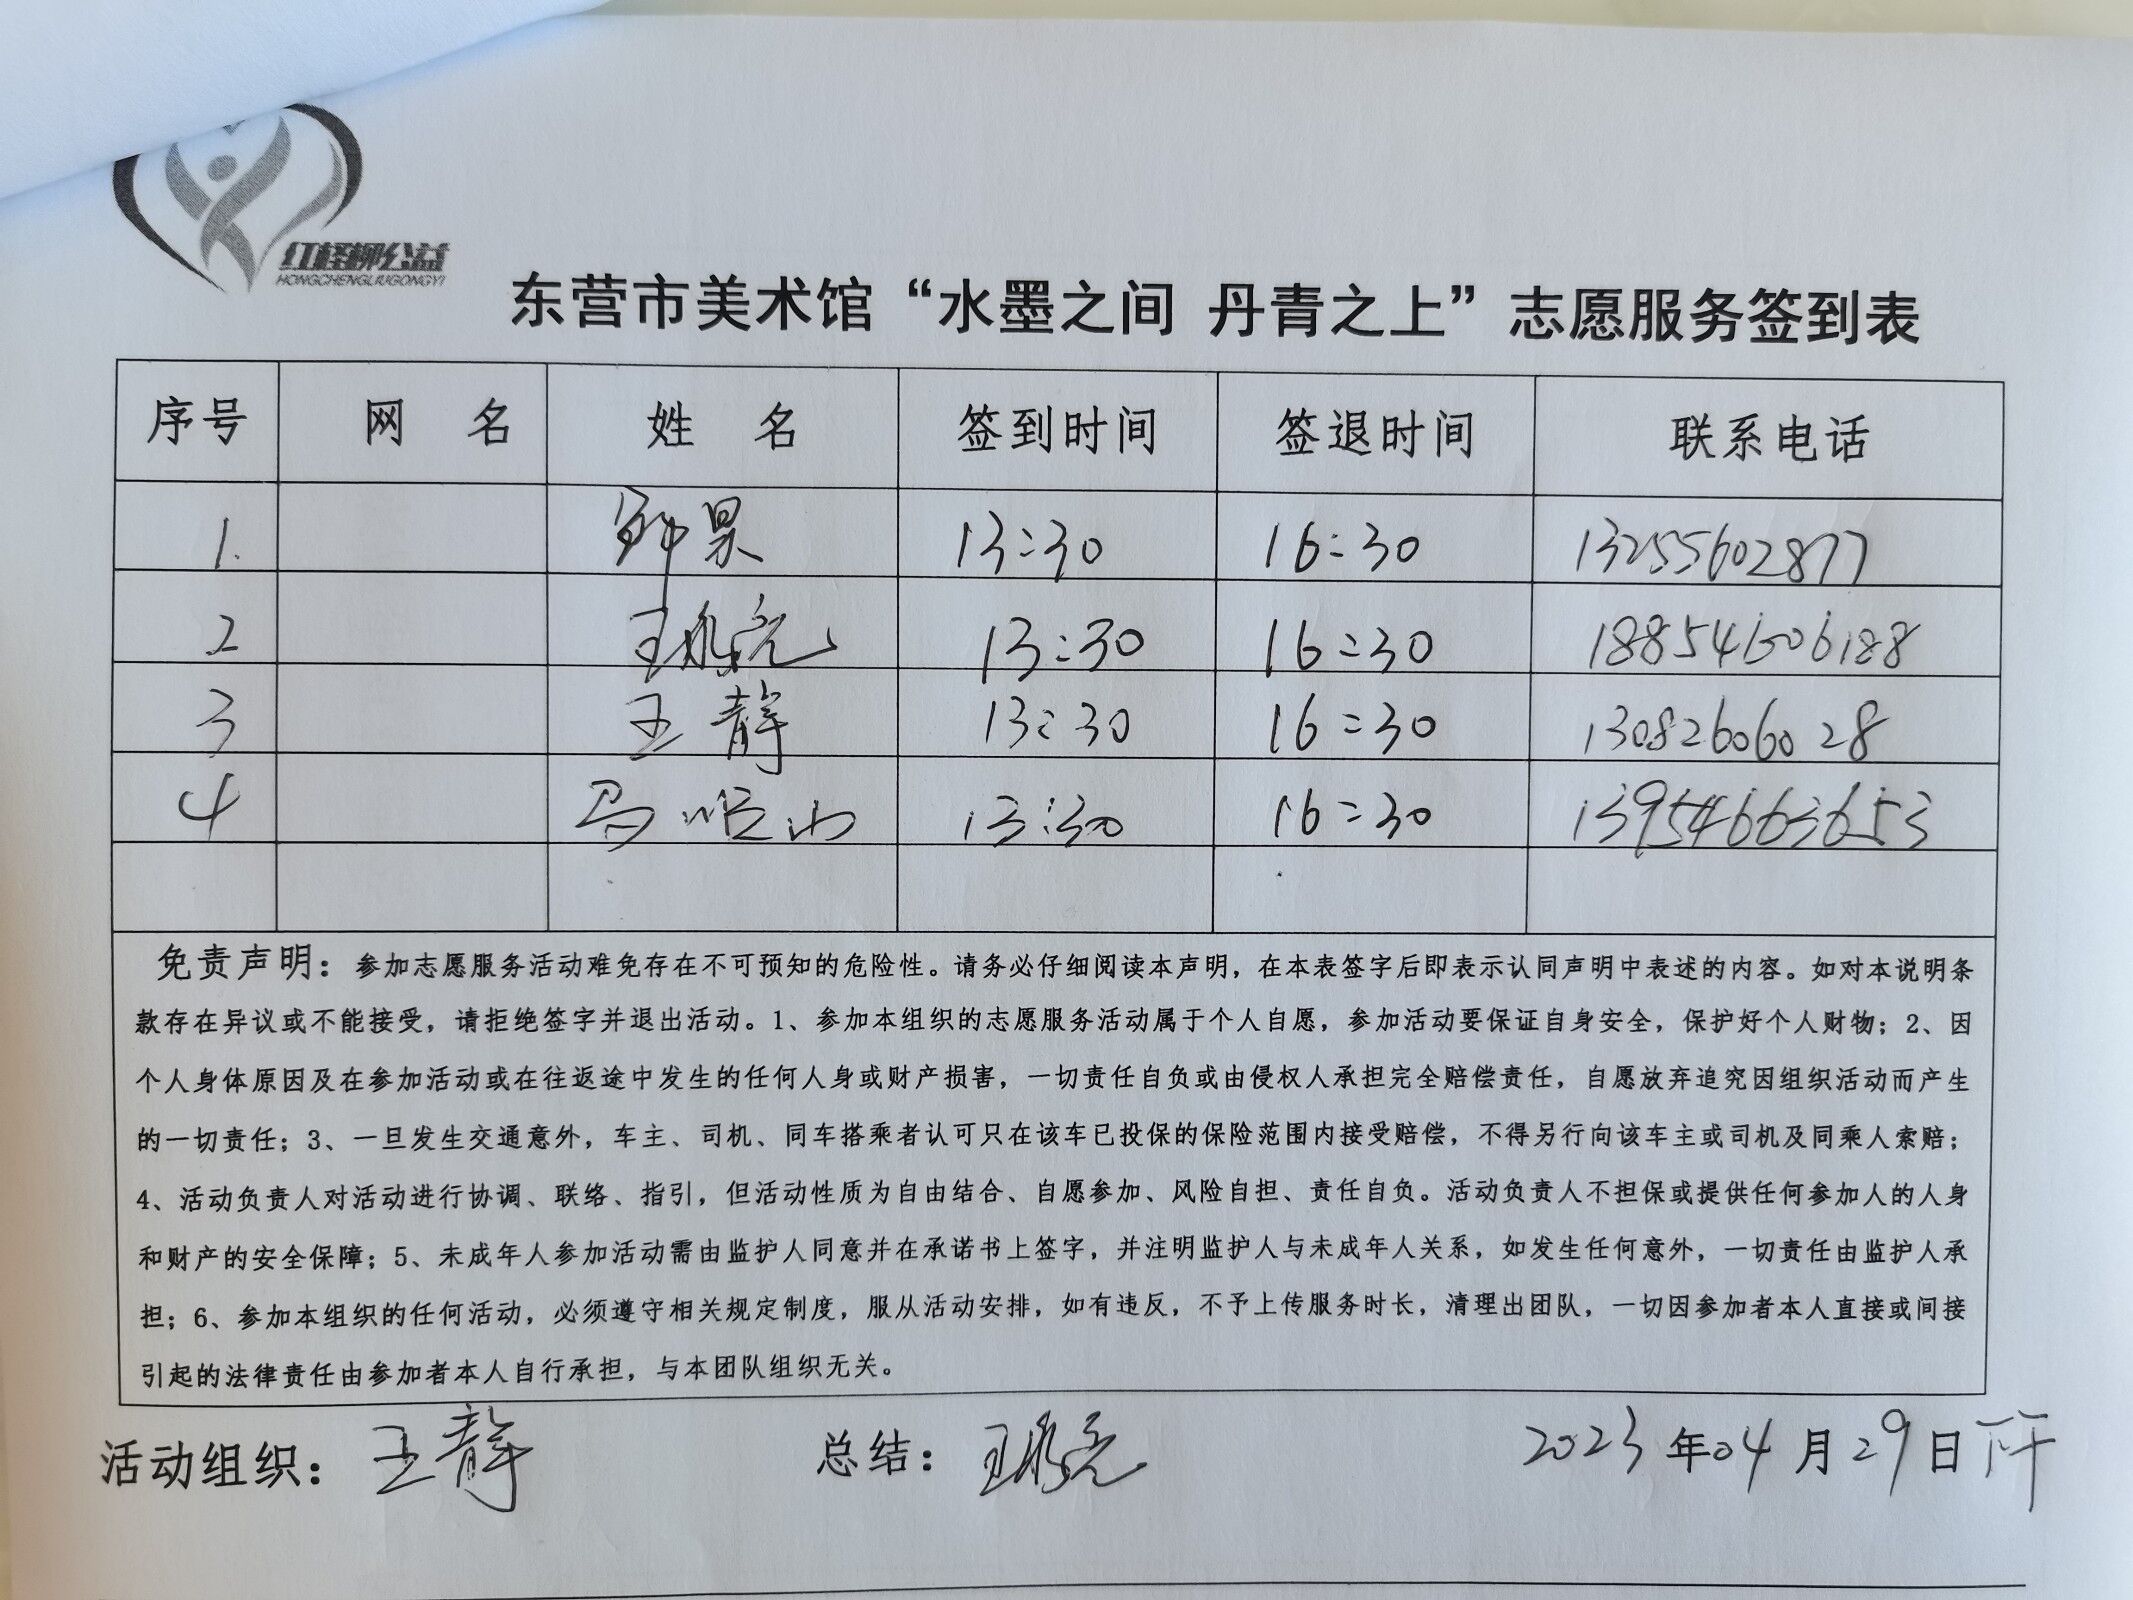 红柽柳公益
HONGCHENGLIUGONGYI
东营市美术馆“水墨之间 丹青之上”志愿服务签到表
序号 网 名 姓 名 签到时间 签退时间 联系电话
1. 昊 13:30 16:30 13255602877
2 王 亮 13:30 16:30 18854606188
3 王静 13:30 16:30 13082606028
4 马 13:30 16:30 13954663653
免责声明：参加志愿服务活动难免存在不可预知的危险性。请务必仔细阅读本声明，在本表签字后即表示认同声明中表述的内容。如对本说明条
款存在异议或不能接受，请拒绝签字并退出活动。1、参加本组织的志愿服务活动属于个人自愿，参加活动要保证自身安全，保护好个人财物；2、因
个人身体原因及在参加活动或在往返途中发生的任何人身或财产损害，一切责任自负或由侵权人承担完全赔偿责任，自愿放弃追究因组织活动而产生
的一切责任；3、一旦发生交通意外，车主、司机、同车搭乘者认可只在该车已投保的保险范围内接受赔偿，不得另行向该车主或司机及同乘人索赔；
4、活动负责人对活动进行协调、联络、指引，但活动性质为自由结合、自愿参加、风险自担、责任自负。活动负责人不担保或提供任何参加人的人身
和财产的安全保障；5、未成年人参加活动需由监护人同意并在承诺书上签字，并注明监护人与未成年人关系，如发生任何意外，一切责任由监护人承
担；6、参加本组织的任何活动，必须遵守相关规定制度，服从活动安排，如有违反，不予上传服务时长，清理出团队，一切因参加者本人直接或间接
引起的法律责任由参加者本人自行承担，与本团队组织无关。
活动组织：王静 总结：王 亮 2023年04月29日下午